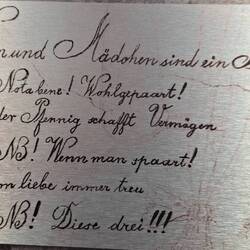 und Mädchen sind ein
Nota bene! Wohlgepaart!
der Pfennig schafft Vermögen
NB! Wenn man spaart!
liebe immer treu
NB! Diese drei!!!